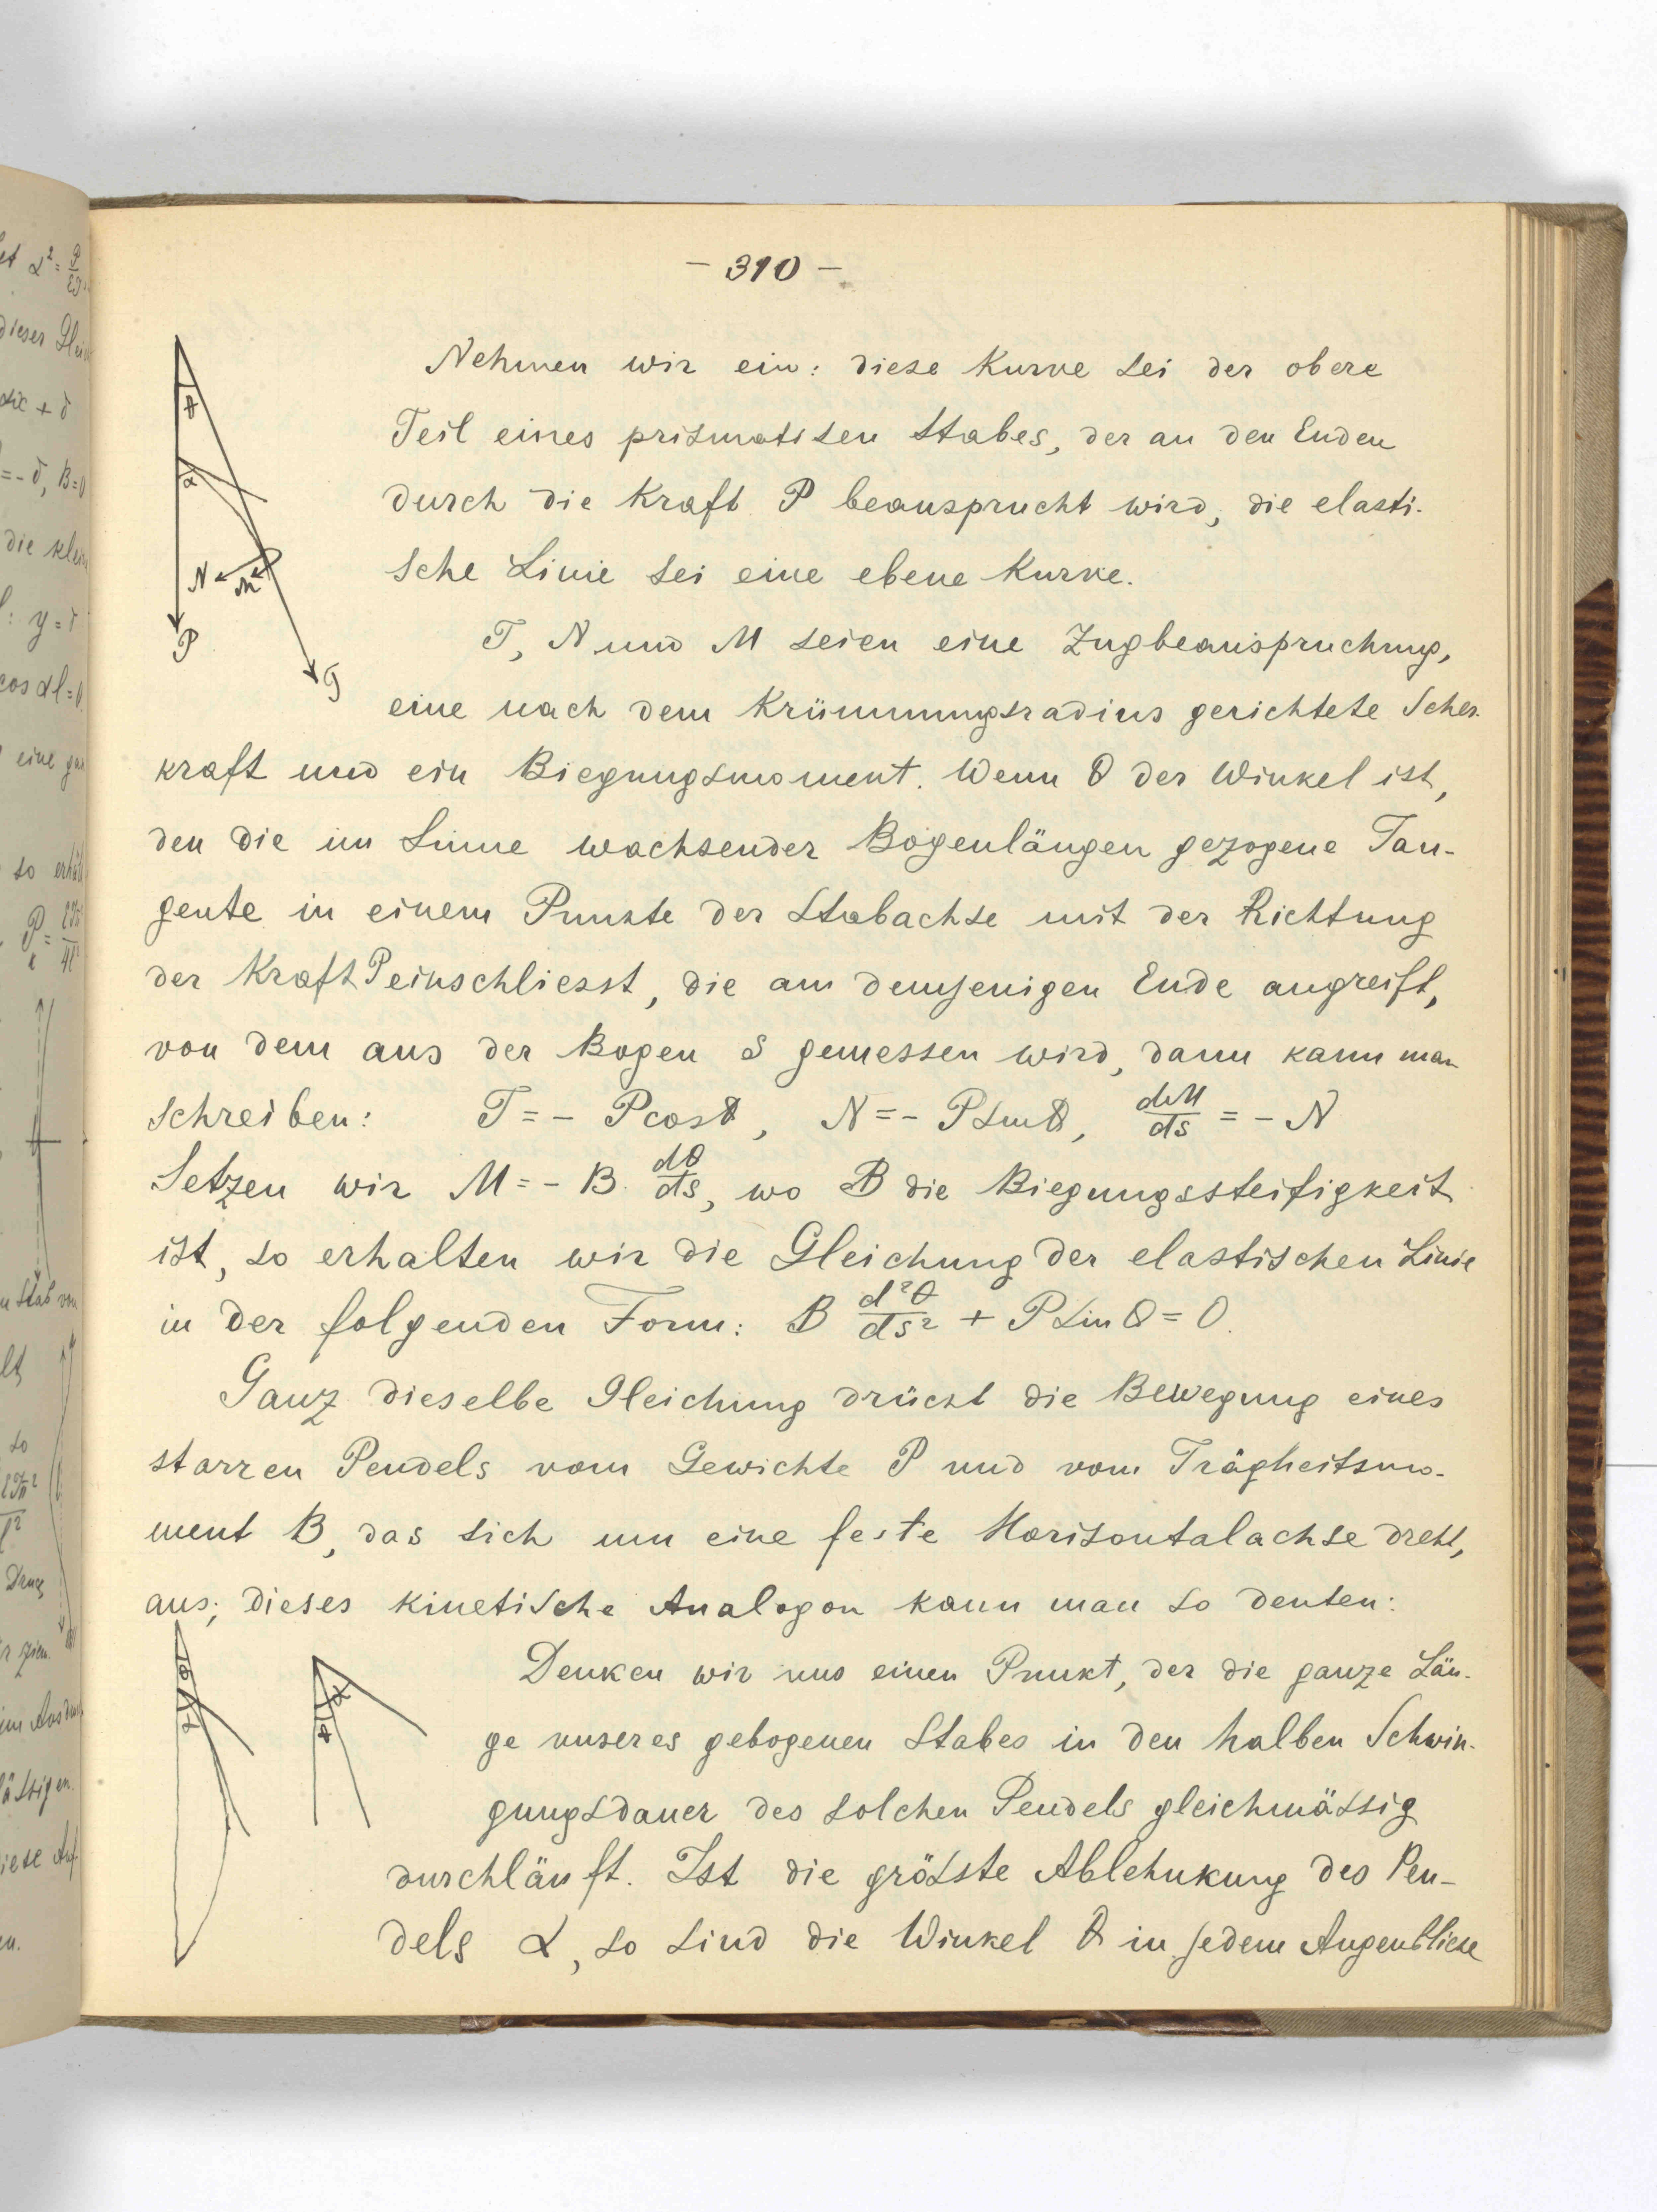 - 310 -
Nehmen wir ein: diese Kurve sei der obere
Teil eines prismatisen Stabes, der an den Enden
durch die Kraft P beansprucht wird, die elasti-
sche Linie sei eine ebene Kurve.
T, N und M seien eine Zugbeanspruchung,
eine nach dem Krümmungsradius gerichtete Scher-
kraft und ein Biegungsmoment. Wenn θ der Winkel ist,
den die im Sinne wachsender Bogenlängen gezogene Tan-
gente in einem Punkte der Stabachse mit der Richtung
der Kraft P einschliesst, die am demjenigen Ende angreift,
von dem aus der Bogen s gemessen wird, dann kann man
schreiben: T = - P cos θ, N = - P sin θ, dM/ds = - N
Setzen wir M = - B dθ/ds, wo B die Biegungssteifigkeit
ist, so erhalten wir die Gleichung der elastischen Linie
in der folgenden Form: B d²θ/ds² + P sin θ = 0.
Ganz dieselbe Gleichung drückt die Bewegung eines
starren Pendels vom Gewichte P und vom Trägheitsmo-
ment B, das sich um eine feste Horisontalachse dreht,
aus; dieses kinetische Analogon kann man so deuten:
Denken wir uns einen Punkt, der die ganze Län-
ge unseres gebogenen Stabes in den halben Schwin-
gungsdauer des solchen Pendels gleichmässig
durchläuft. Ist die grösste Ablehnkung des Pen-
dels α, so sind die Winkel θ in jedem Augenblicke
θ
α
N
M
P
T
θ
α
α
θ